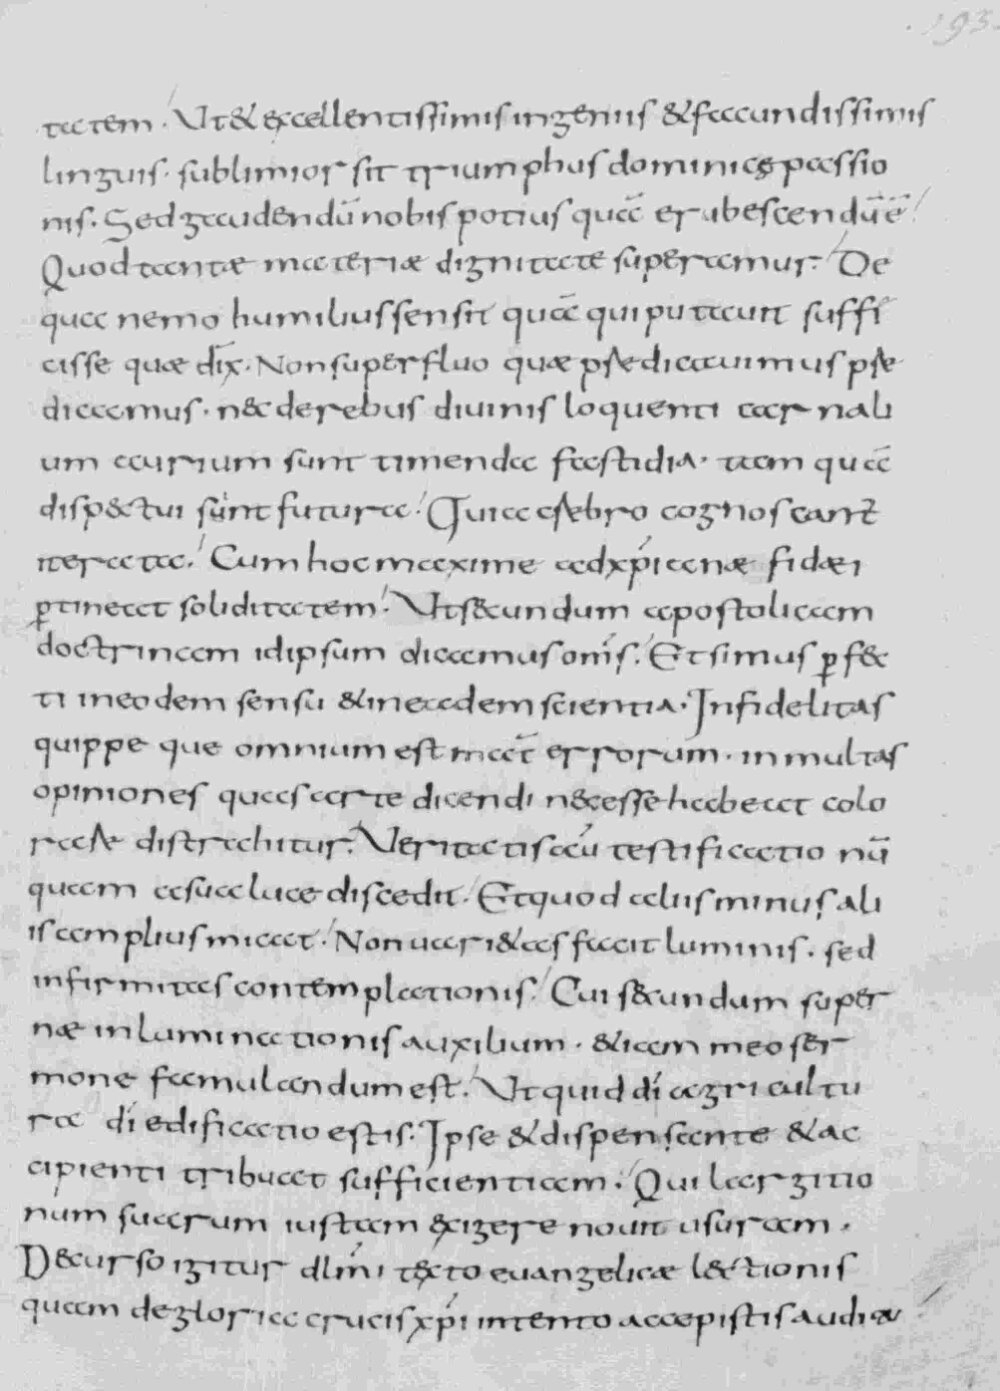 .193.
tatem. Ut & excellentissimis ingeniis & facundissimis
linguis. sublimior sit triumphus dominicę passio
nis. Sed gaudendū nobis potius quā erubescendū ē.
Quod tantæ materiæ dignitate superamur. De
qua nemo humilius sensit quā qui putauit suffi
cisse quæ dix̄. Non superfluo quæ psæ dicauimus psæ
dicamus. nec de rebus diuinis loquenti carnali
um aurium sunt timenda fastidia. tam quā
dispectui sint futura. Quia csæbro cognoscant̄
iterata. Cum hoc maxime ad xp̄ianæ fidæi
ꝑtineat soliditatem. Ut secundum apostolicam
doctrinam idipsum dicamus om̄s. Et simus ꝑfec
ti in eodem sensu & in eadem scientia. Infidelitas
quippe que omnium est mat̄ errorum. in multas
opiniones quas arte dicendi necesse habeat colo
rasæ distrahitur. Veritatis aū testificatio nū
quam a sua luce discedit. Et quod aliis minus ali
is amplius micat. Non uari&as facit luminis. sed
infirmitas contemplationis. Cui secundum super
næ inluminationis auxilium. &iam meo ser
mone famulandum est. Ut quid dī agricultu
ra dī edificatio estis. Ipse & dispensante & ac
cipienti tribuat sufficientiam. Qui largitio
num suarum iustam exigere nouit usuram.
Decurso igitur dl̄mi texto euangelicæ lectionis
quam de gloria crucis xp̄i intento accepistis auditu